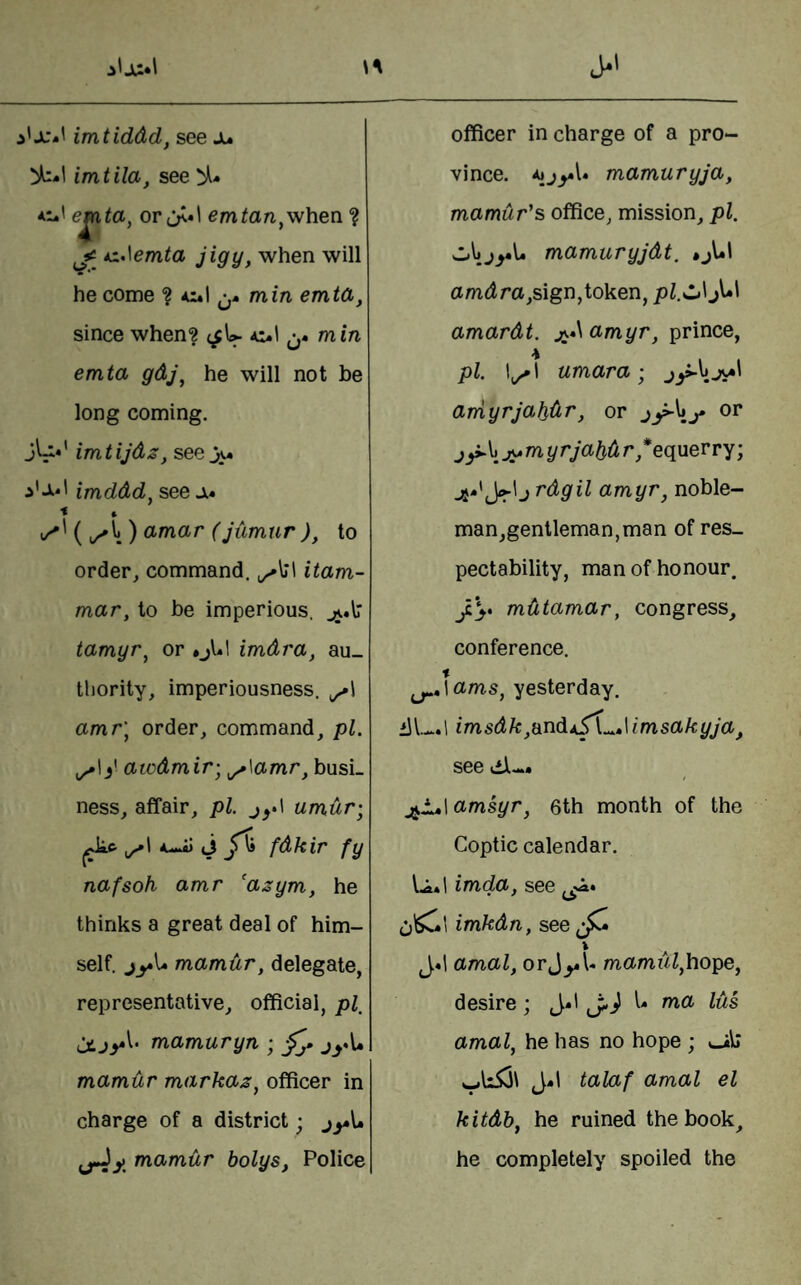 امتداد ١٩ امل
امتداد imtiddâd, see مد
امتلا imtila, see ملا
امته emta, or امتن emtan, when ?
امته يجى emta jigy, when will
he come ? من امته min emta,
since when? من امته جاى min
emta gâj, he will not be
long coming.
امتياز imtijâz, see ميز
امداد imddâd, see مد
أمر ( يامر ) amar (jûmur ), to
order, command. اتامر itam-
mar, to be imperious. تامير
tamyr, or اماره imâra, au-
thority, imperiousness. امر
amr; order, command, pl.
اوامر awâmir; امر amr, busi-
ness, affair, pl. امور umûr;
فاكر فى نفسه امر عظيم fâkir fy
nafsoh amr ‘azym, he
thinks a great deal of him-
self. مامور mamûr, delegate,
representative, official, pl.
مامورين mamuryn ; مامور مركز
mamûr markaz, officer in
charge of a district ; مامور
بوليس mamûr bolys, Police
officer in charge of a pro-
vince. مامورية mamuryja,
mamûr's office, mission, pl.
ماموريات mamuryjât. اماره
amâra, sign, token, pl. امارات
amarât. امير amyr, prince,
pl. أمرا umara ; اميرياخور
amyrjaḫûr, or مرياخور or
ميرياخور myrjaḫûr,*equerry;
راجل امير râgil amyr, noble-
man, gentleman, man of res-
pectability, man of honour.
مؤتمر mûtamar, congress,
conference.
أمس ams, yesterday.
امساك imsâk, and امساكية imsakyja,
see مسك
امشير amsyr, 6th month of the
Coptic calendar.
امضا imḍa, see مضى
امكان imkân, see مكن
امل amal, or مامول mamûl, hope,
desire ; ما لوش امل ma lûs
amal, he has no hope ; تلف
امل الكتاب talaf amal el
kitâb, he ruined the book,
he completely spoiled the